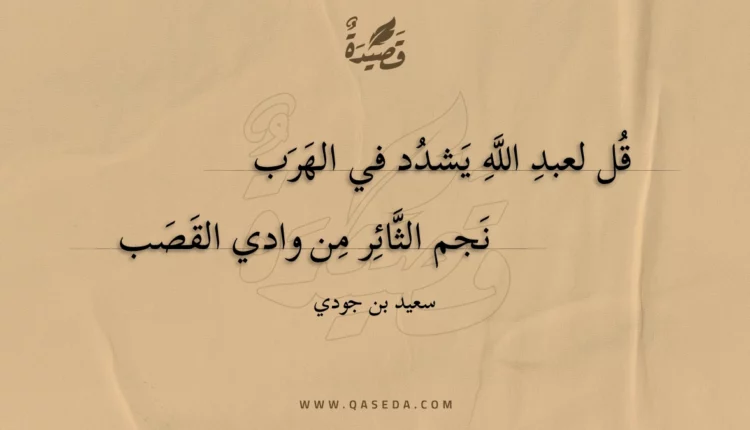 قَصِيدَةٌ
قُل لعبدِ اللَّهِ يَشدُد في الهَرَب
نَجم الثَّائِر مِن وادي القَصَب
سعيد بن جودي
WWW.QASEDA.COM